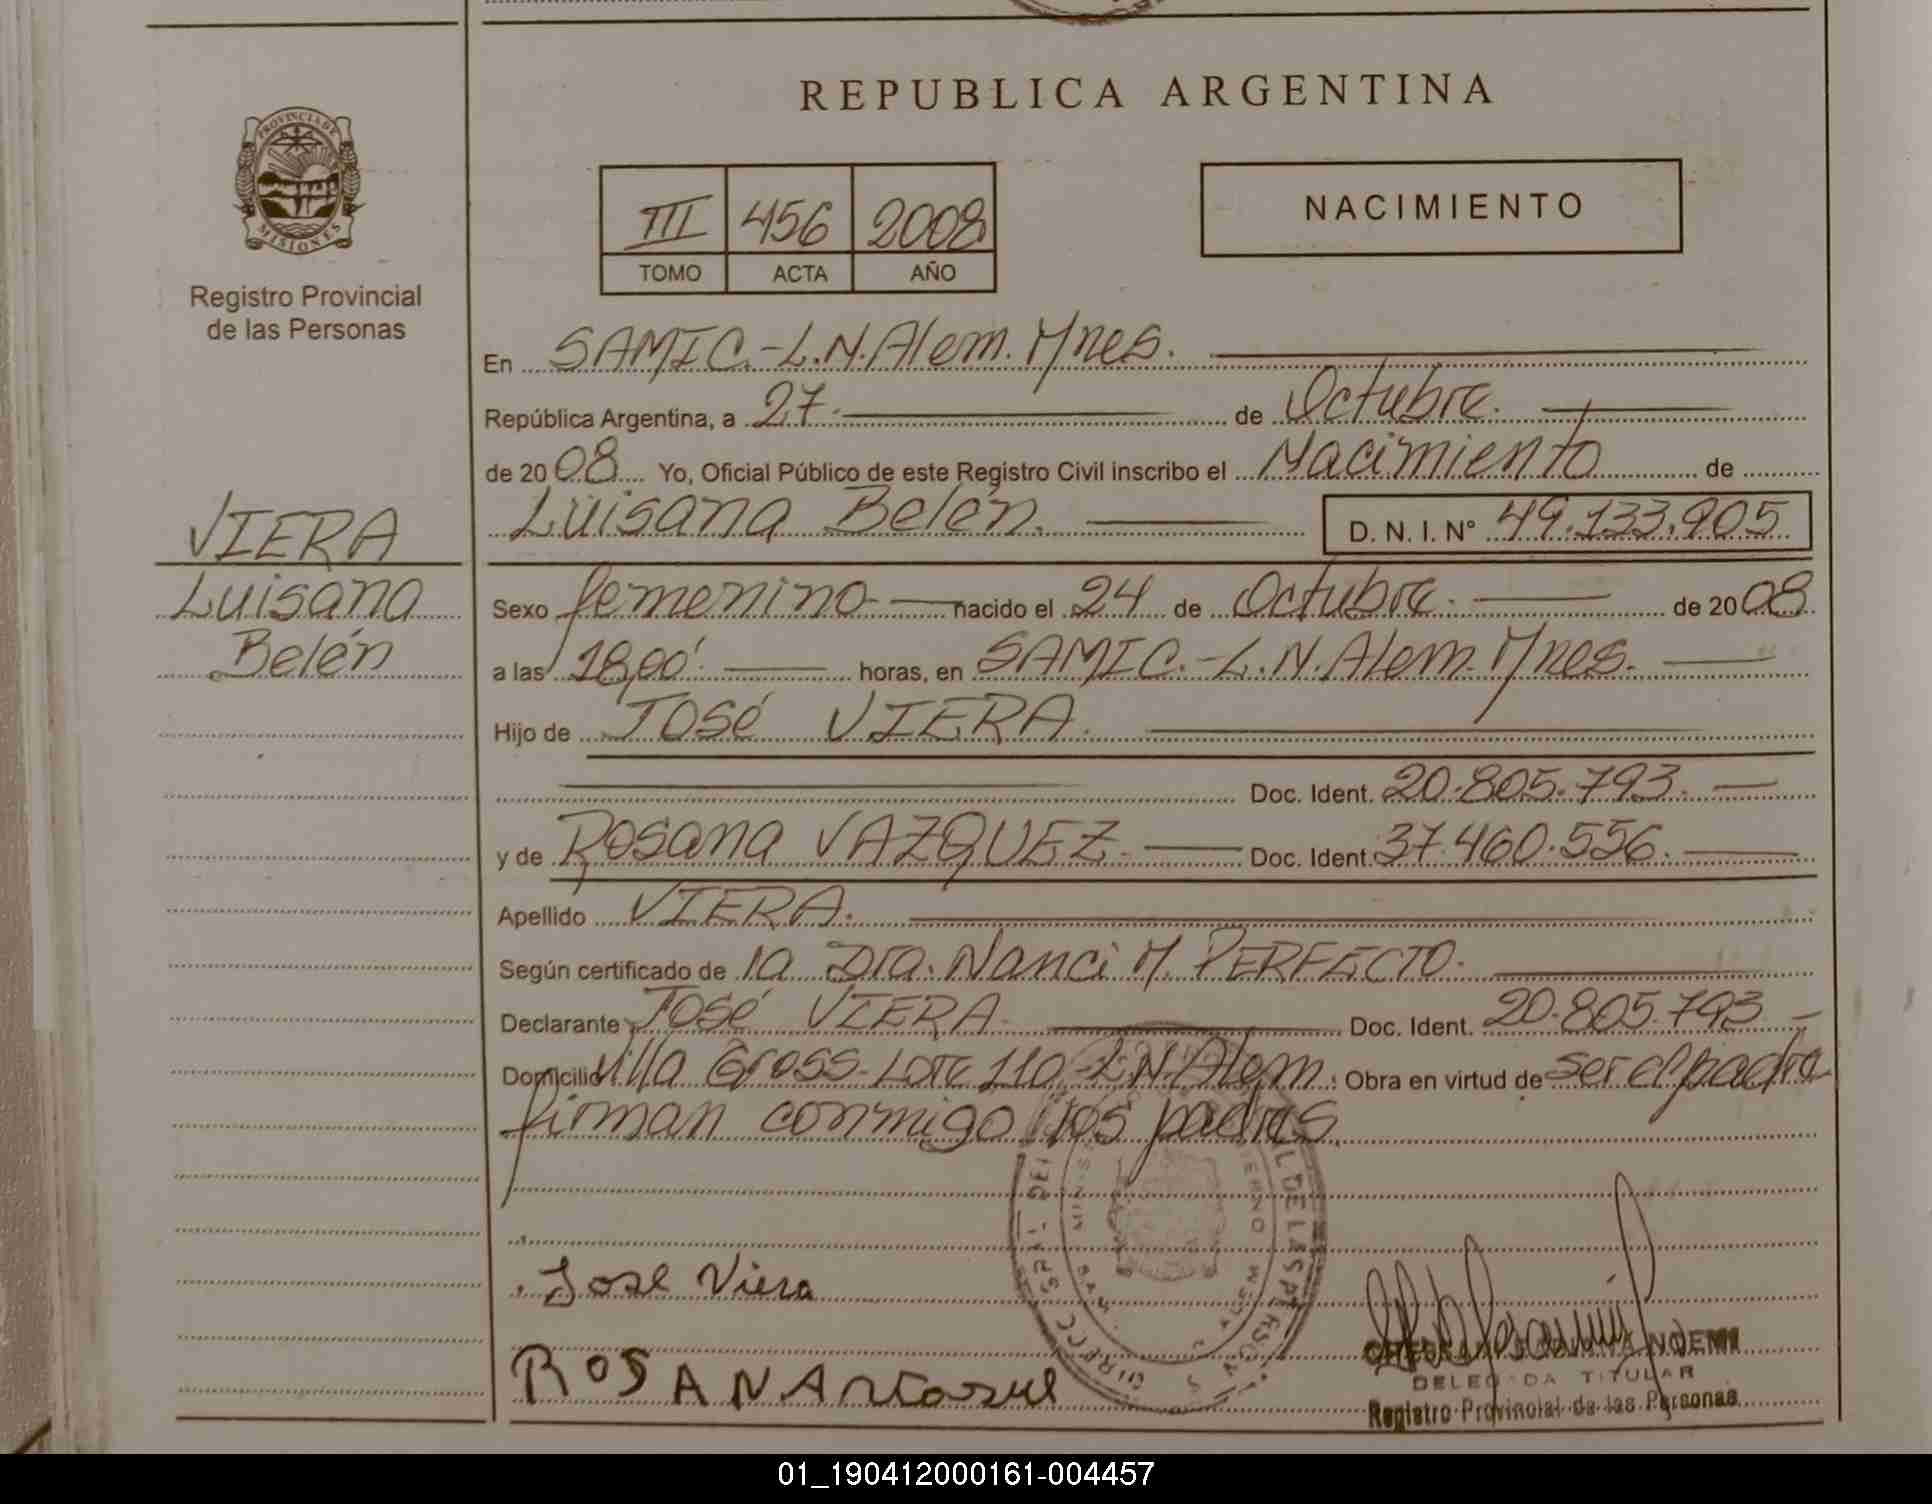 REPUBLICA ARGENTINA
PROVINCIA DE
MISIONES
Registro Provincial
de las Personas
III 456 2008
TOMO ACTA AÑO
NACIMIENTO
VIERA
Luisana
Belén
En SAMIC.-L.N.Alem. Mnes.
República Argentina, a 27. de Octubre.
de 2008 Yo, Oficial Público de este Registro Civil inscribo el Nacimiento de
Luisana Belén. D. N. I. N° 49.133.905
Sexo femenino nacido el 24 de Octubre. de 2008
a las 18,00'. horas, en SAMIC.-L.N.Alem. Mnes.
Hijo de José VIERA.
Doc. Ident. 20.805.793.
y de Rosana VAZQUEZ. Doc. Ident. 37.460.556.
Apellido VIERA.
Según certificado de la Dra. Nanci M. PERFECTO.
Declarante José VIERA. Doc. Ident. 20.805.793
Domicilio Villa Gross-Lote 110-L.N.Alem. Obra en virtud de ser el padre
firman conmigo los padres.
Jose Viera
ROSANA
NOEMI
DELEGADA TITULAR
Registro Provincial de las Personas
01_190412000161-004457